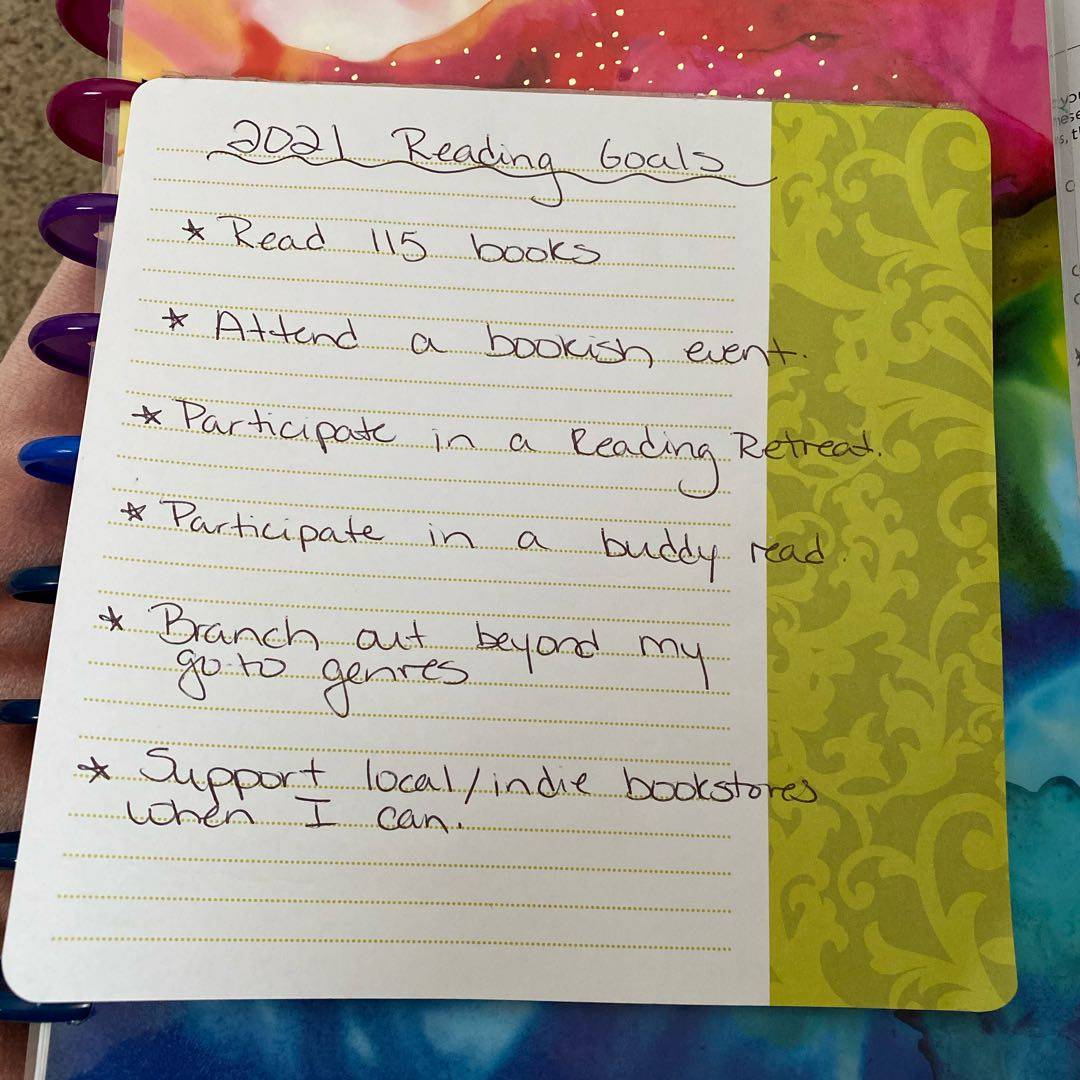 2021 Reading Goals
* Read 115 books
* Attend a bookish event.
* Participate in a Reading Retreat.
* Participate in a buddy read.
* Branch out beyond my
go-to genres
* Support local/indie bookstores
when I can.